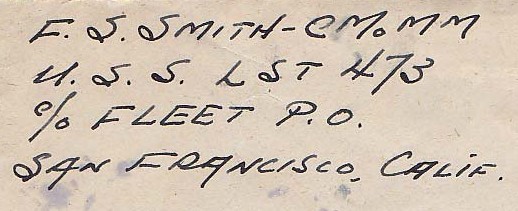 F. S. SMITH - CMoMM
U. S. S. LST 473
c/o FLEET P.O.
SAN FRANCISCO, CALIF.